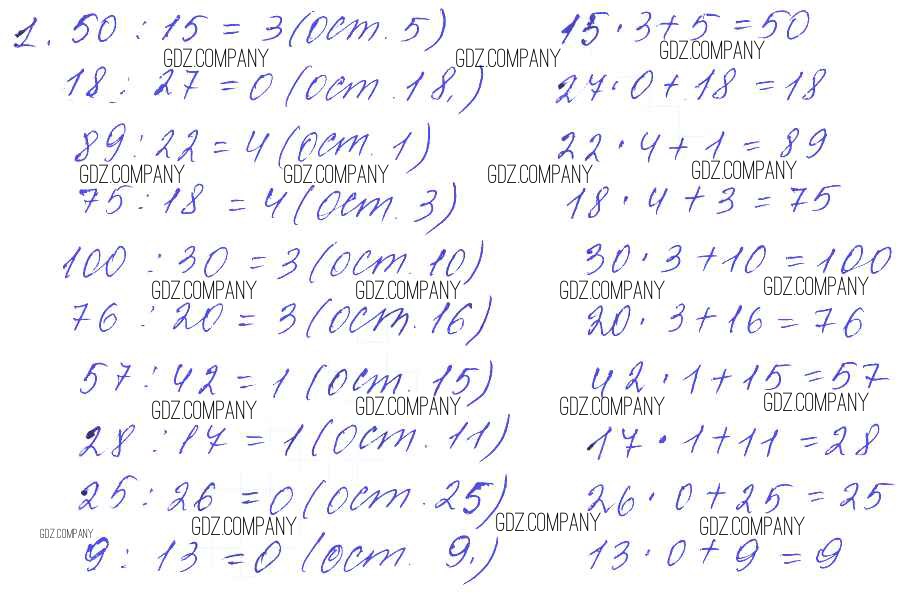 1. 50 : 15 = 3 (ост. 5) 15 · 3 + 5 = 50
GDZ.COMPANY GDZ.COMPANY GDZ.COMPANY
18 : 27 = 0 (ост. 18.) 27 · 0 + 18 = 18
89 : 22 = 4 (ост. 1) 22 · 4 + 1 = 89
GDZ.COMPANY GDZ.COMPANY GDZ.COMPANY GDZ.COMPANY
75 : 18 = 4 (ост. 3) 18 · 4 + 3 = 75
100 : 30 = 3 (ост. 10) 30 · 3 + 10 = 100
GDZ.COMPANY GDZ.COMPANY GDZ.COMPANY GDZ.COMPANY
76 : 20 = 3 (ост. 16) 20 · 3 + 16 = 76
57 : 42 = 1 (ост. 15) 42 · 1 + 15 = 57
GDZ.COMPANY GDZ.COMPANY GDZ.COMPANY GDZ.COMPANY
28 : 17 = 1 (ост. 11) 17 · 1 + 11 = 28
25 : 26 = 0 (ост. 25) 26 · 0 + 25 = 25
GDZ.COMPANY GDZ.COMPANY GDZ.COMPANY GDZ.COMPANY
9 : 13 = 0 (ост. 9.) 13 · 0 + 9 = 9